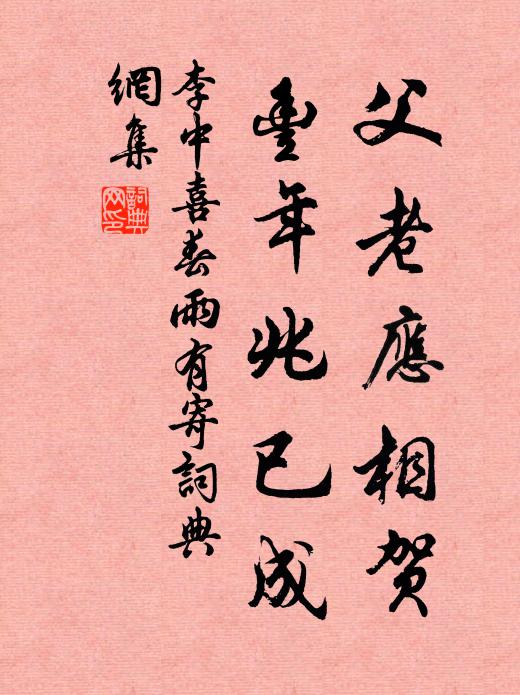 父老應相賀
豊年兆已成
李中喜春雨有寄詞典
網集
詞典
网印